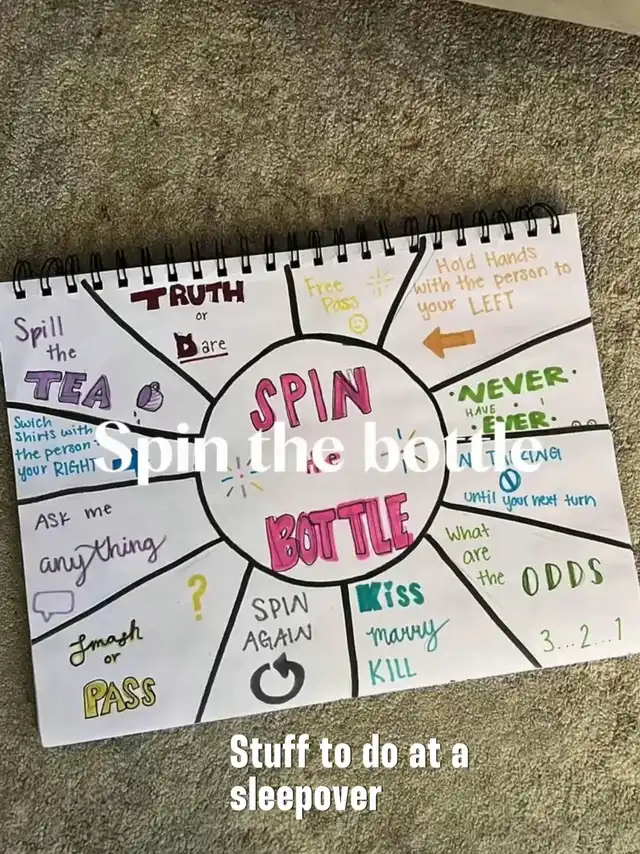 TRUTH
or
Dare
Free
Pass
Hold Hands
with the person to
your LEFT
Spill
the
TEA
SPIN
the
BOTTLE
NEVER
HAVE
EVER
Swich
Shirts with
the person
your RIGHT
Spin the bottle
until your next turn
ASK me
anything
What
are
the
ODDS
3...2...1
Smash
or
PASS
?
SPIN
AGAIN
Kiss
marry
KILL
Stuff to do at a
sleepover